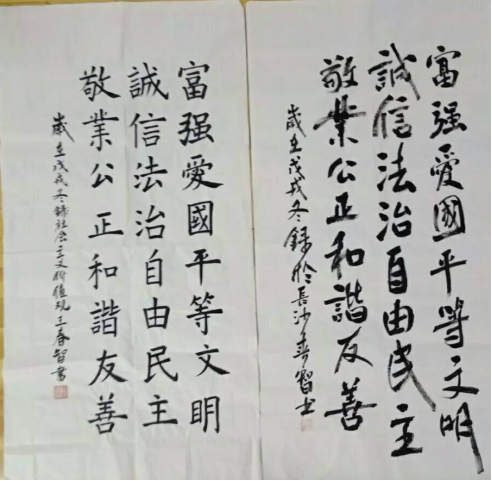 富强愛國平等文明
誠信法治自由民主
敬業公正和諧友善
歲在戊戌冬錄於長沙春智書
富强愛國平等文明
誠信法治自由民主
敬業公正和諧友善
歲在戊戌冬錄社会主义价值观王春智書